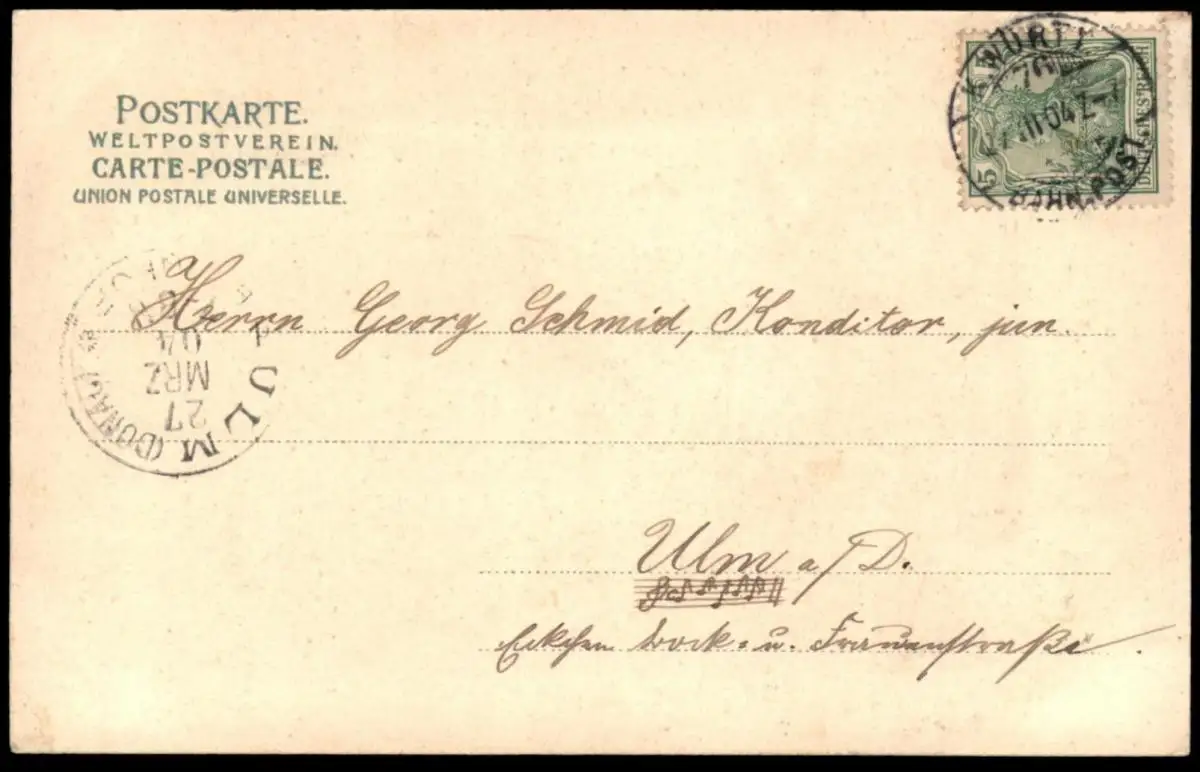 POSTKARTE.
WELTPOSTVEREIN.
CARTE-POSTALE.
UNION POSTALE UNIVERSELLE.
K.WÜRTT.
III 04 Z
BAHN.POST
5
DEUTSCHES REICH
Herrn Georg Schmid, Konditor, jun.
ULM (DONAU)
27
MRZ
04
Ulm a/D.
Eckchen Bock- u. Frauenstraße.